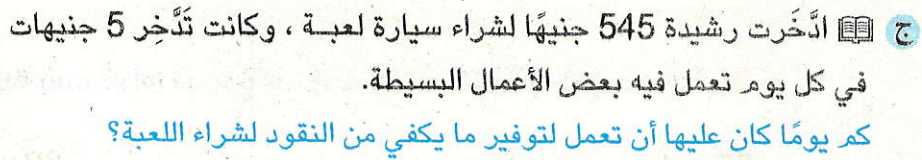 ج ادَّخَرت رشيدة 545 جنيهًا لشراء سيارة لعبة ، وكانت تَدَّخِر 5 جنيهات
في كل يوم تعمل فيه بعض الأعمال البسيطة.
كم يومًا كان عليها أن تعمل لتوفير ما يكفي من النقود لشراء اللعبة؟